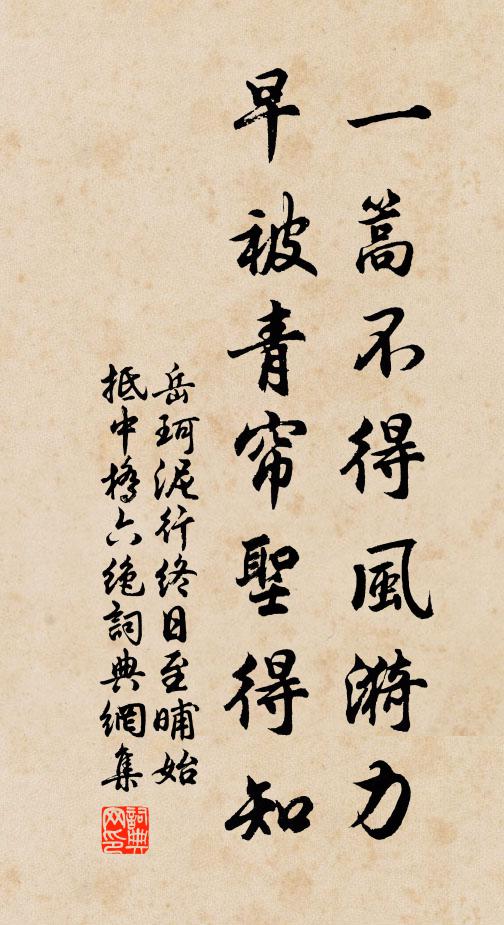 一篙不得風漪力
早被青帘聖得知
岳珂泥行終日至晡始
抵中橋六絶詞典網集
詞典网印